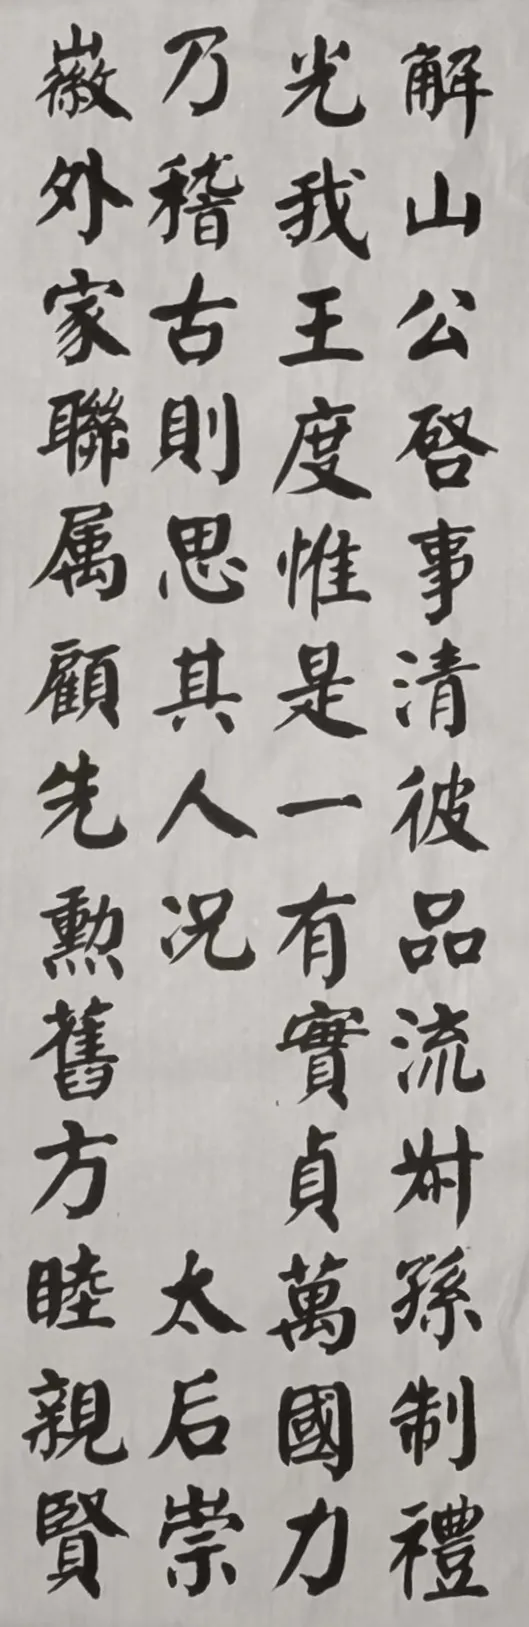 解山公啓事清彼品流尗孫制禮
光我王度惟是一有實貞萬國力
乃稽古則思其人况 太后崇
徽外家聯属顧先勲舊方睦親賢